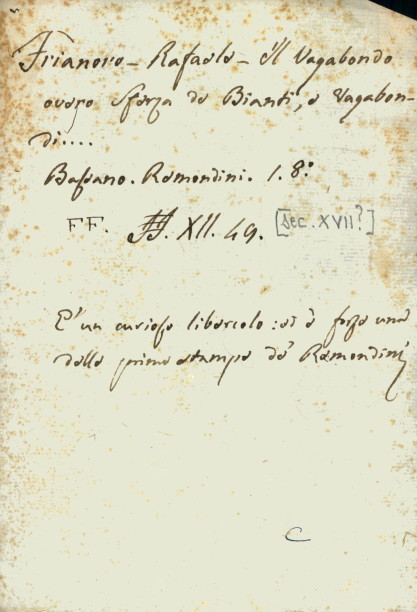 Frianoro - Rafaele - Il Vagabondo
overo Sferza de Bianti, o Vagabon-
di....
Bassano. Remondini. 1. 8.º
FF. XII. 49. [Sec. XVII?]
E' un curioso libercolo: ed è forse una
delle prime stampe de' Remondini
C